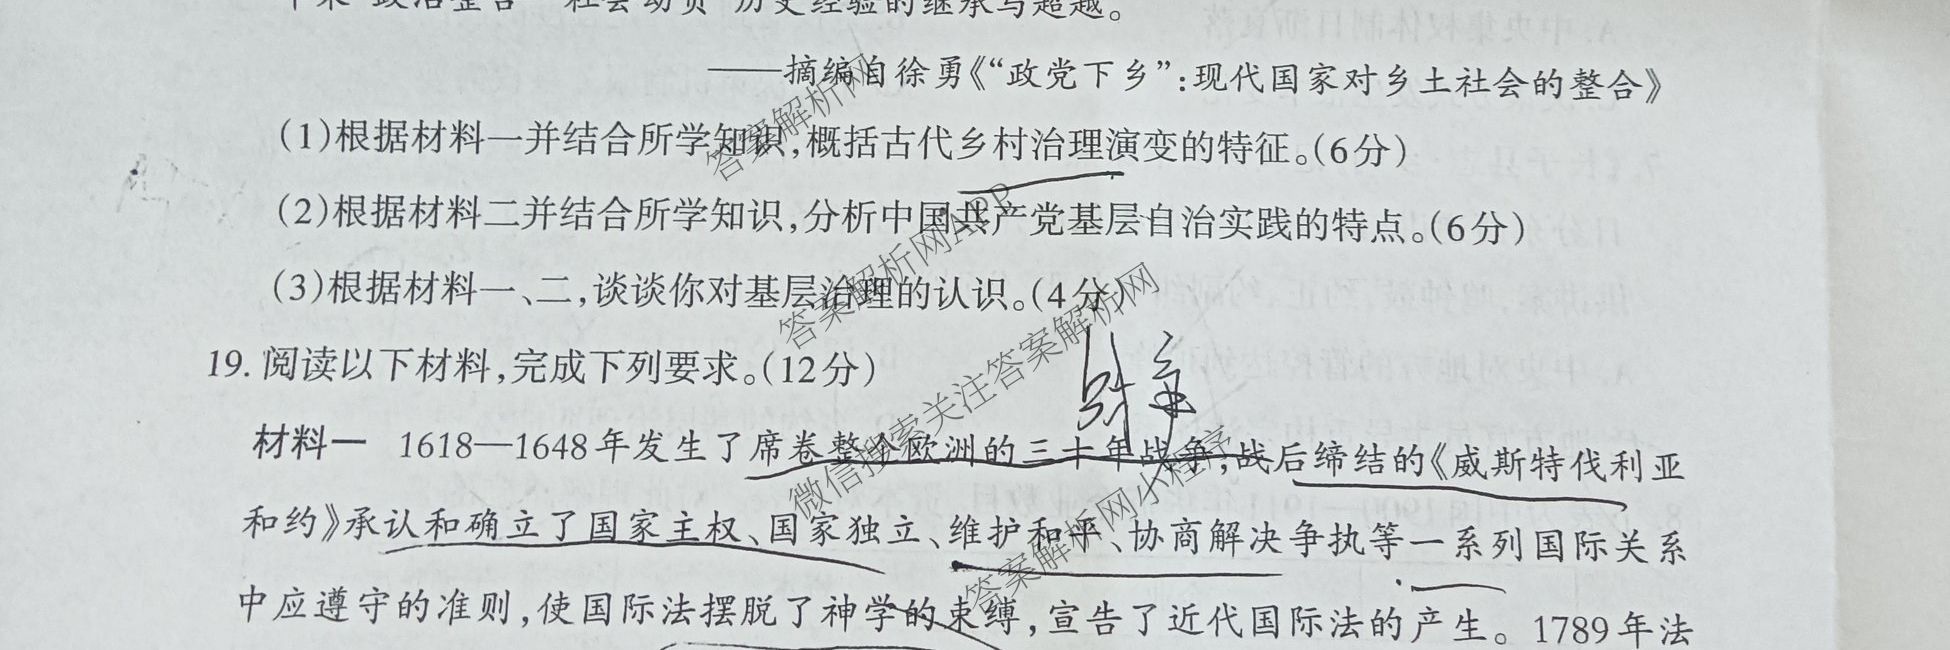 年来“政治整合”“社会动员”历史经验的继承与超越。
——摘编自徐勇《“政党下乡”:现代国家对乡土社会的整合》
(1)根据材料一并结合所学知识,概括古代乡村治理演变的特征。(6分)
(2)根据材料二并结合所学知识,分析中国共产党基层自治实践的特点。(6分)
(3)根据材料一、二,谈谈你对基层治理的认识。(4分)
19. 阅读以下材料,完成下列要求。(12分)
材料一 1618—1648年发生了席卷整个欧洲的三十年战争,战后缔结的《威斯特伐利亚
和约》承认和确立了国家主权、国家独立、维护和平、协商解决争执等一系列国际关系
中应遵守的准则,使国际法摆脱了神学的束缚,宣告了近代国际法的产生。1789年法
答案解析网
答案解析网APP
微信搜索关注答案解析网
答案解析网小程序